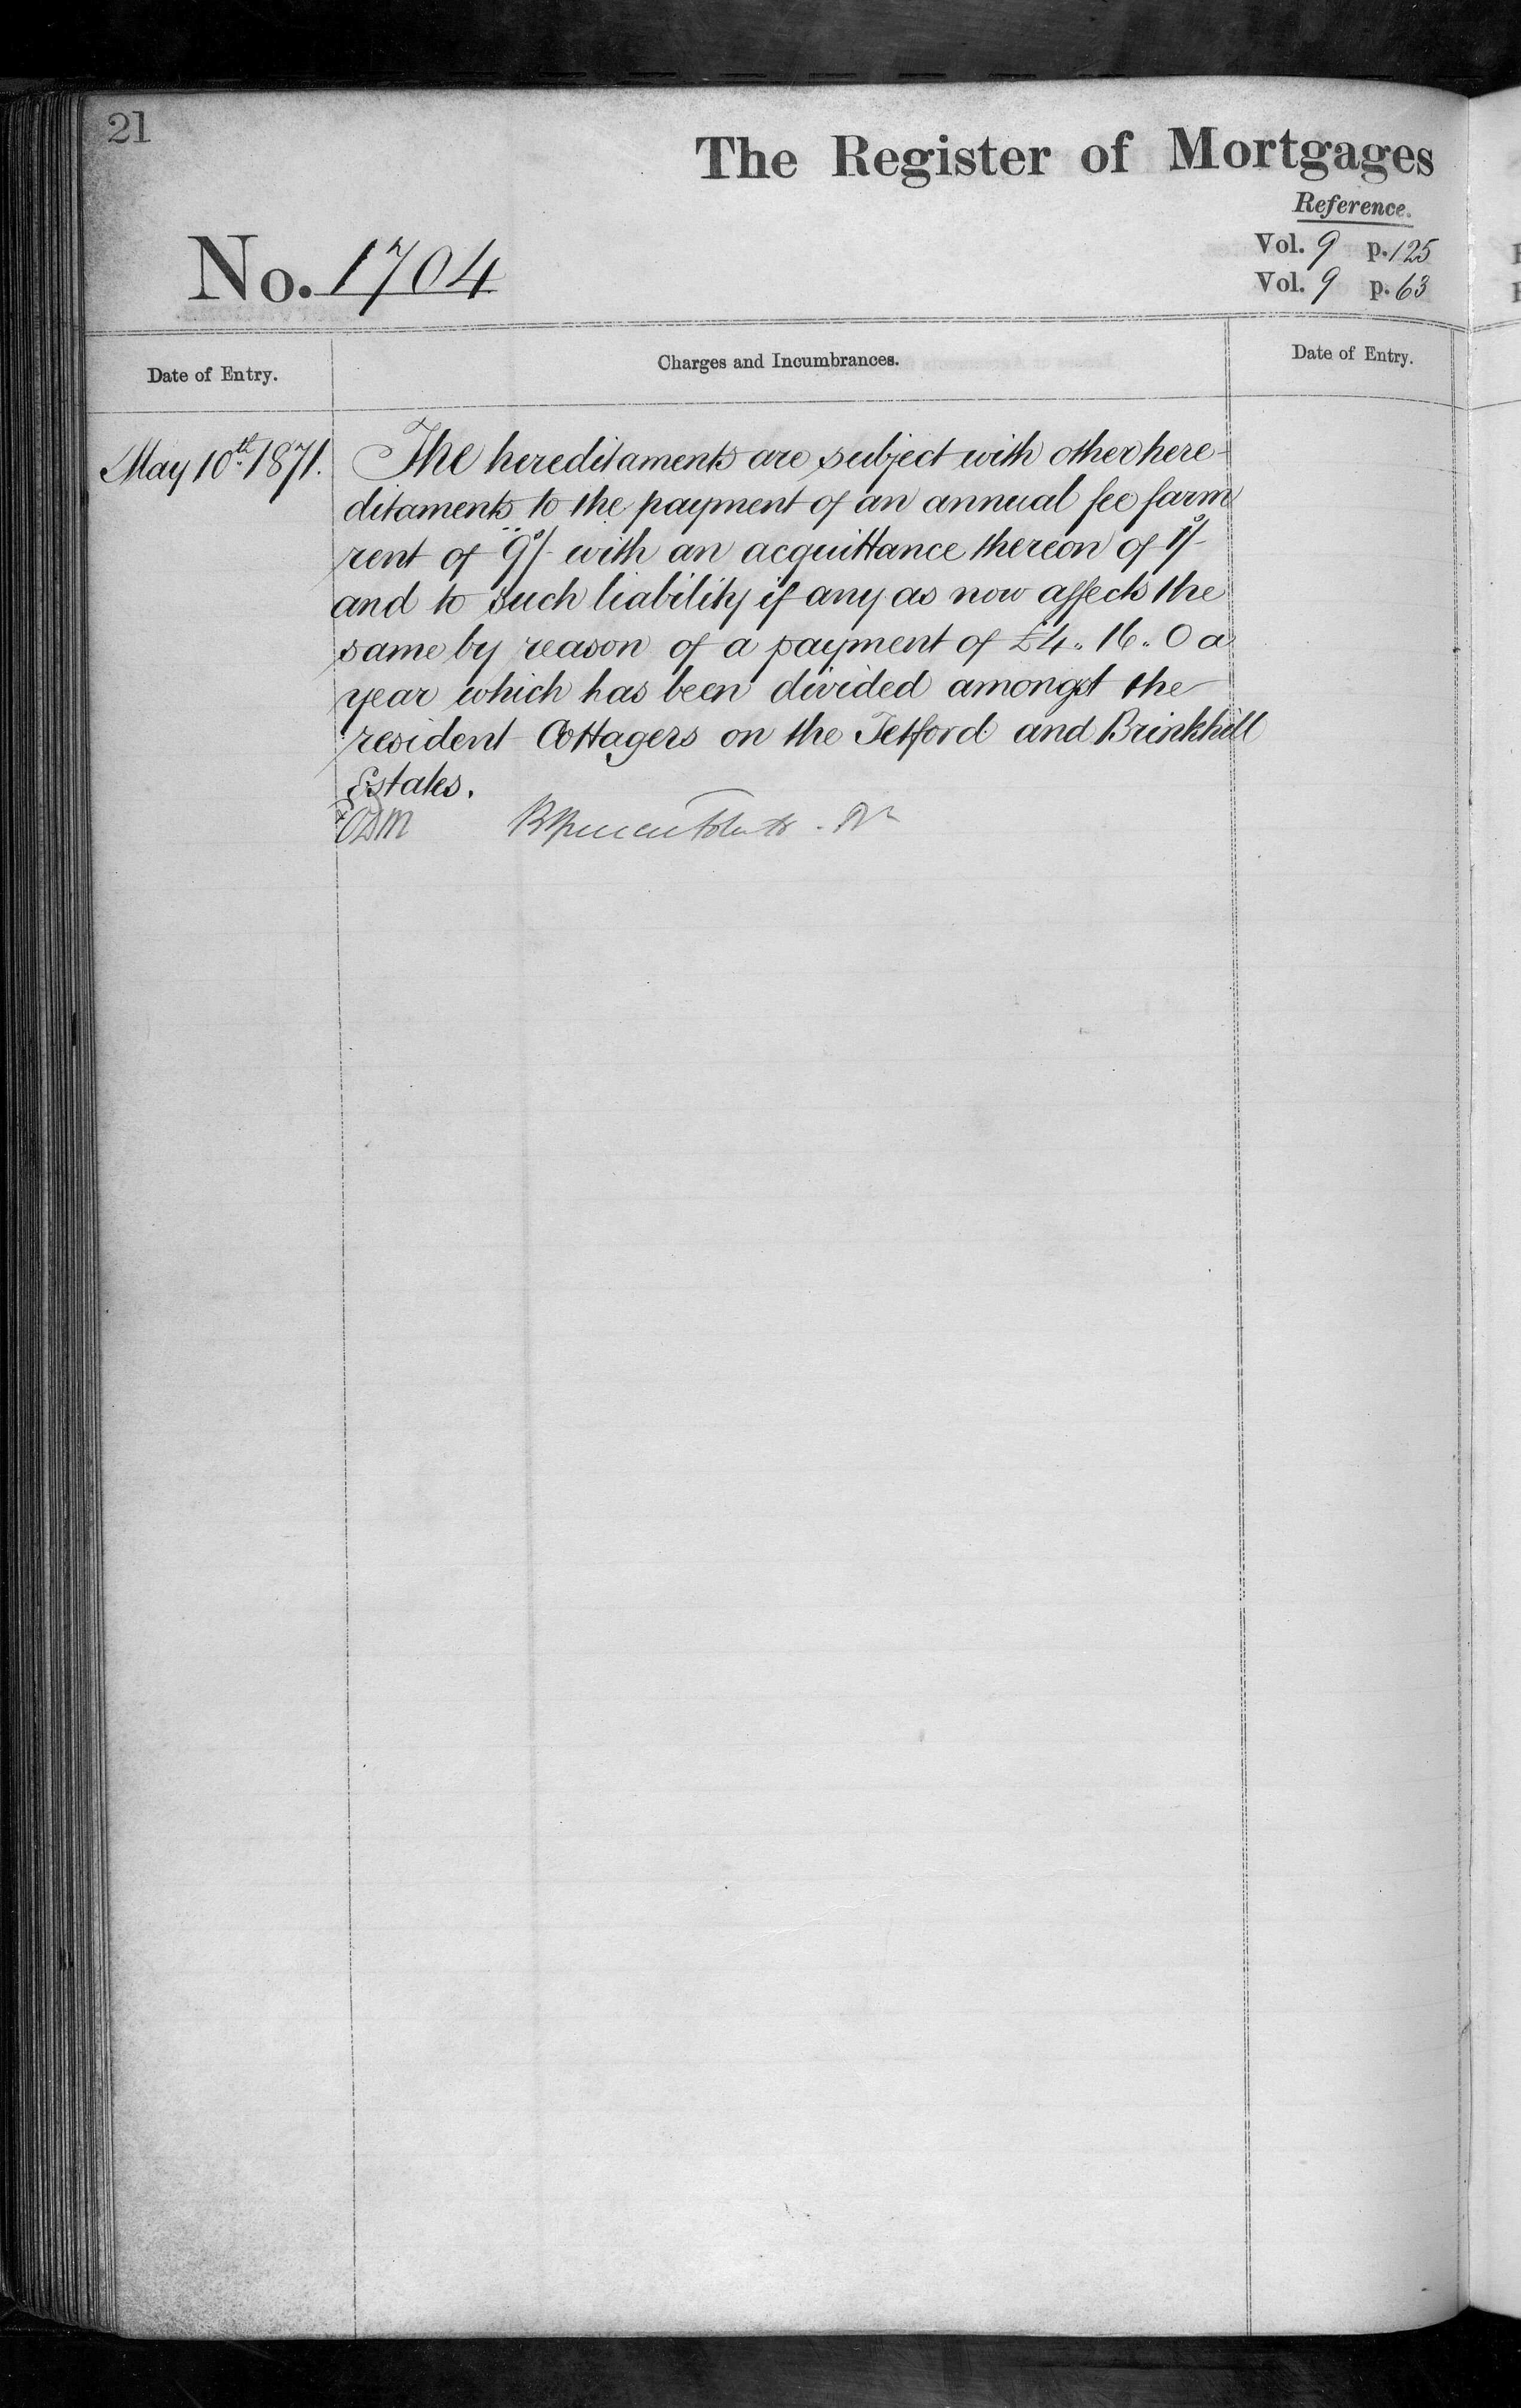 21
The Register of Mortgages
Reference.
Vol. 9 p. 125
Vol. 9 p. 63
No. 1704
Date of Entry.
Charges and Incumbrances.
Date of Entry.
May 10th 1871.
The hereditaments are subject with other here-
ditaments to the payment of an annual fee farm
rent of 9s/- with an acquittance thereon of 1s/-
and to such liability if any as now affects the
same by reason of a payment of £4. 16. 0 a
year which has been divided amongst the
resident Cottagers on the Tetford and Brinkhill
Estates.